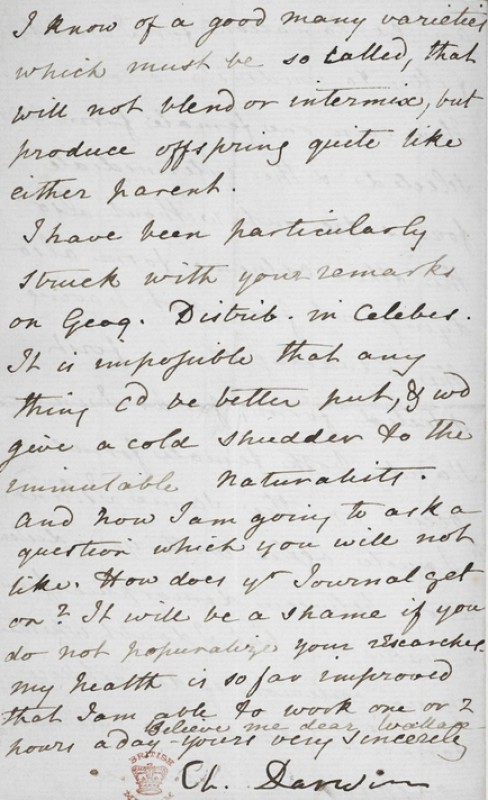 I know of a good many varieties
which must be so called, that
will not blend or intermix, but
produce offspring quite like
either parent.
I have been particularly
struck with your remarks
on Geog. Distrib. in Celebes.
It is impossible that any
thing cd be better put, & wd
give a cold shudder to the
immutable naturalists.
And now I am going to ask a
question which you will not
like. How does yr Journal get
on? It will be a shame if you
do not popularize your researches.
my health is so far improved
that I am able to work one or 2
hours a day
Believe me dear Wallace
yours very sincerely
Ch. Darwin
BRITISH